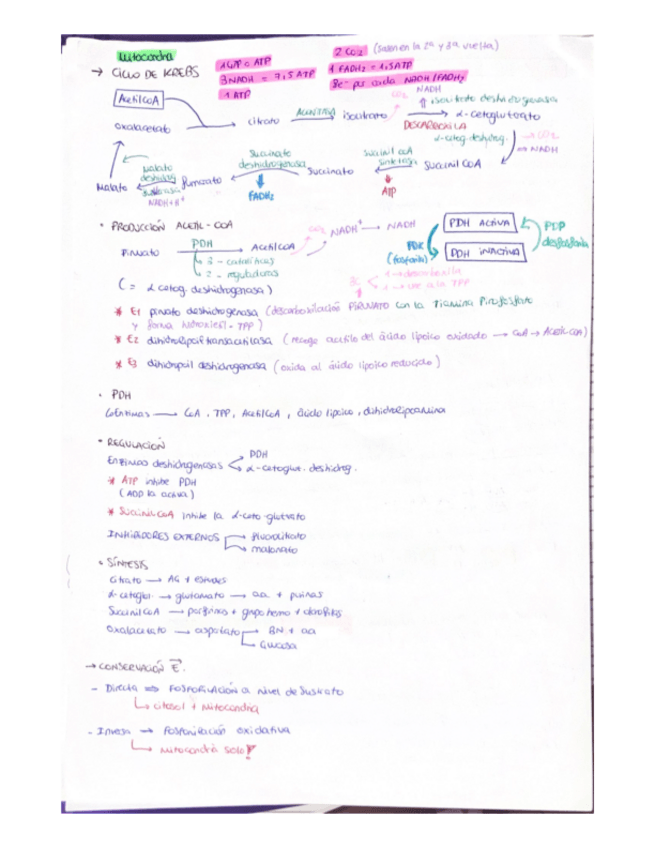 Mitocondria
2 CO2 (salen en la 2ª y 3ª vuelta)
→ CICLO DE KREBS
1 GTP o ATP
3NADH = 7,5ATP
1 ATP
1 FADH2 = 1,5ATP
8e- por cada NADH/FADH2
Acetil CoA
oxalacetato → citrato
ACONITASA → isocitrato
CO2 NADH
isocitrato deshidrogenasa
→ α-cetoglutarato
DESCARBOXILA
α-cetog. deshidrog.
→ CO2
⇒ NADH
Succinil CoA
Succinil CoA sintetasa
↓ ATP
Succinato
Succinato deshidrogenasa
↓ FADH2
fumarato
Malato deshidrog
NADH+H+
Malato
• PRODUCCIÓN ACETIL-COA
Piruvato PDH → Acetil CoA
3 - catalíticas
2 - reguladoras
CO2 NADH+ → NADH
PDH ACTIVA
PDH INACTIVA
PDK (fosforila)
PDP desfosforila
(= α cetog. deshidrogenasa)
1 → descarboxila
1 → une a la TPP
* E1 piruvato deshidrogenasa (descarboxilación PIRUVATO con la Tiamina Pirofosfato
y forma hidroxietil-TPP)
* E2 dihidrolipoil transacetilasa (recoge acetilo del ácido lipoico oxidado → CoA → Acetil CoA)
* E3 dihidrolipoil deshidrogenasa (oxida al ácido lipoico reducido)
• PDH
Coenzimas → CoA, TPP, Acetil CoA, ácido lipoico,
• REGULACIÓN
Enzimas deshidrogenasas PDH
α-cetoglut. deshidrog.
* ATP inhibe PDH
(ADP la activa)
* Succinil CoA inhibe la α-ceto-glutarato
INHIBIDORES EXTERNOS → fluorocitrato
→ malonato
• SÍNTESIS
Citrato → AG + esteroles
α-cetoglut → glutamato → aa + purinas
Succinil CoA → porfirinas + grupo hemo + clorofilas
Oxalacetato → aspartato → BN + aa
→ Glucosa
→ CONSERVACIÓN E.
- Directa ⇒ FOSFORILACIÓN a nivel de sustrato
↳ citosol + mitocondria
- Inversa → Fosforilación oxidativa
↳ mitocondria solo!